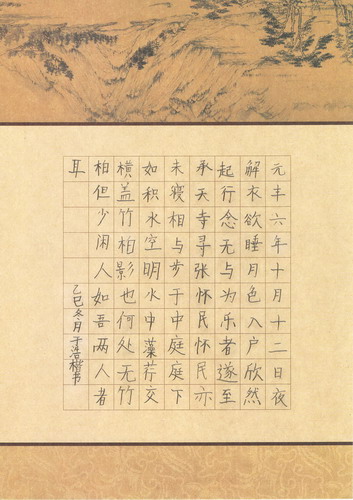 元丰六年十月十二日夜
解衣欲睡月色入户欣然
起行念无与为乐者遂至
承天寺寻张怀民怀民亦
未寝相与步于中庭庭下
如积水空明水中藻荇交
横盖竹柏影也何处无竹
柏但少闲人如吾两人者
耳
乙巳冬月 楷书